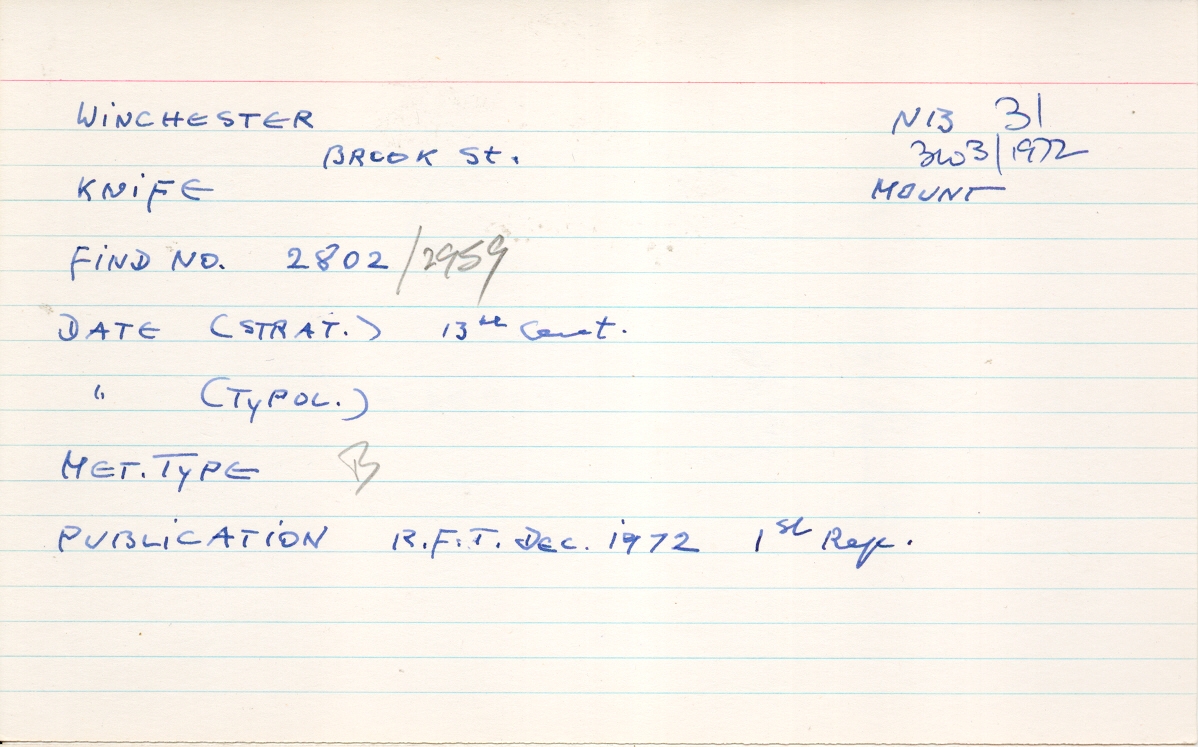 WINCHESTER
N13 31
BROOK St.
3W3/1972
KNIFE
MOUNT
FIND NO. 2802/2959
DATE (STRAT.) 13th Cent.
" (TYPOL.)
MET. TYPE B
PUBLICATION R.F.T. Dec. 1972 1st Rep.